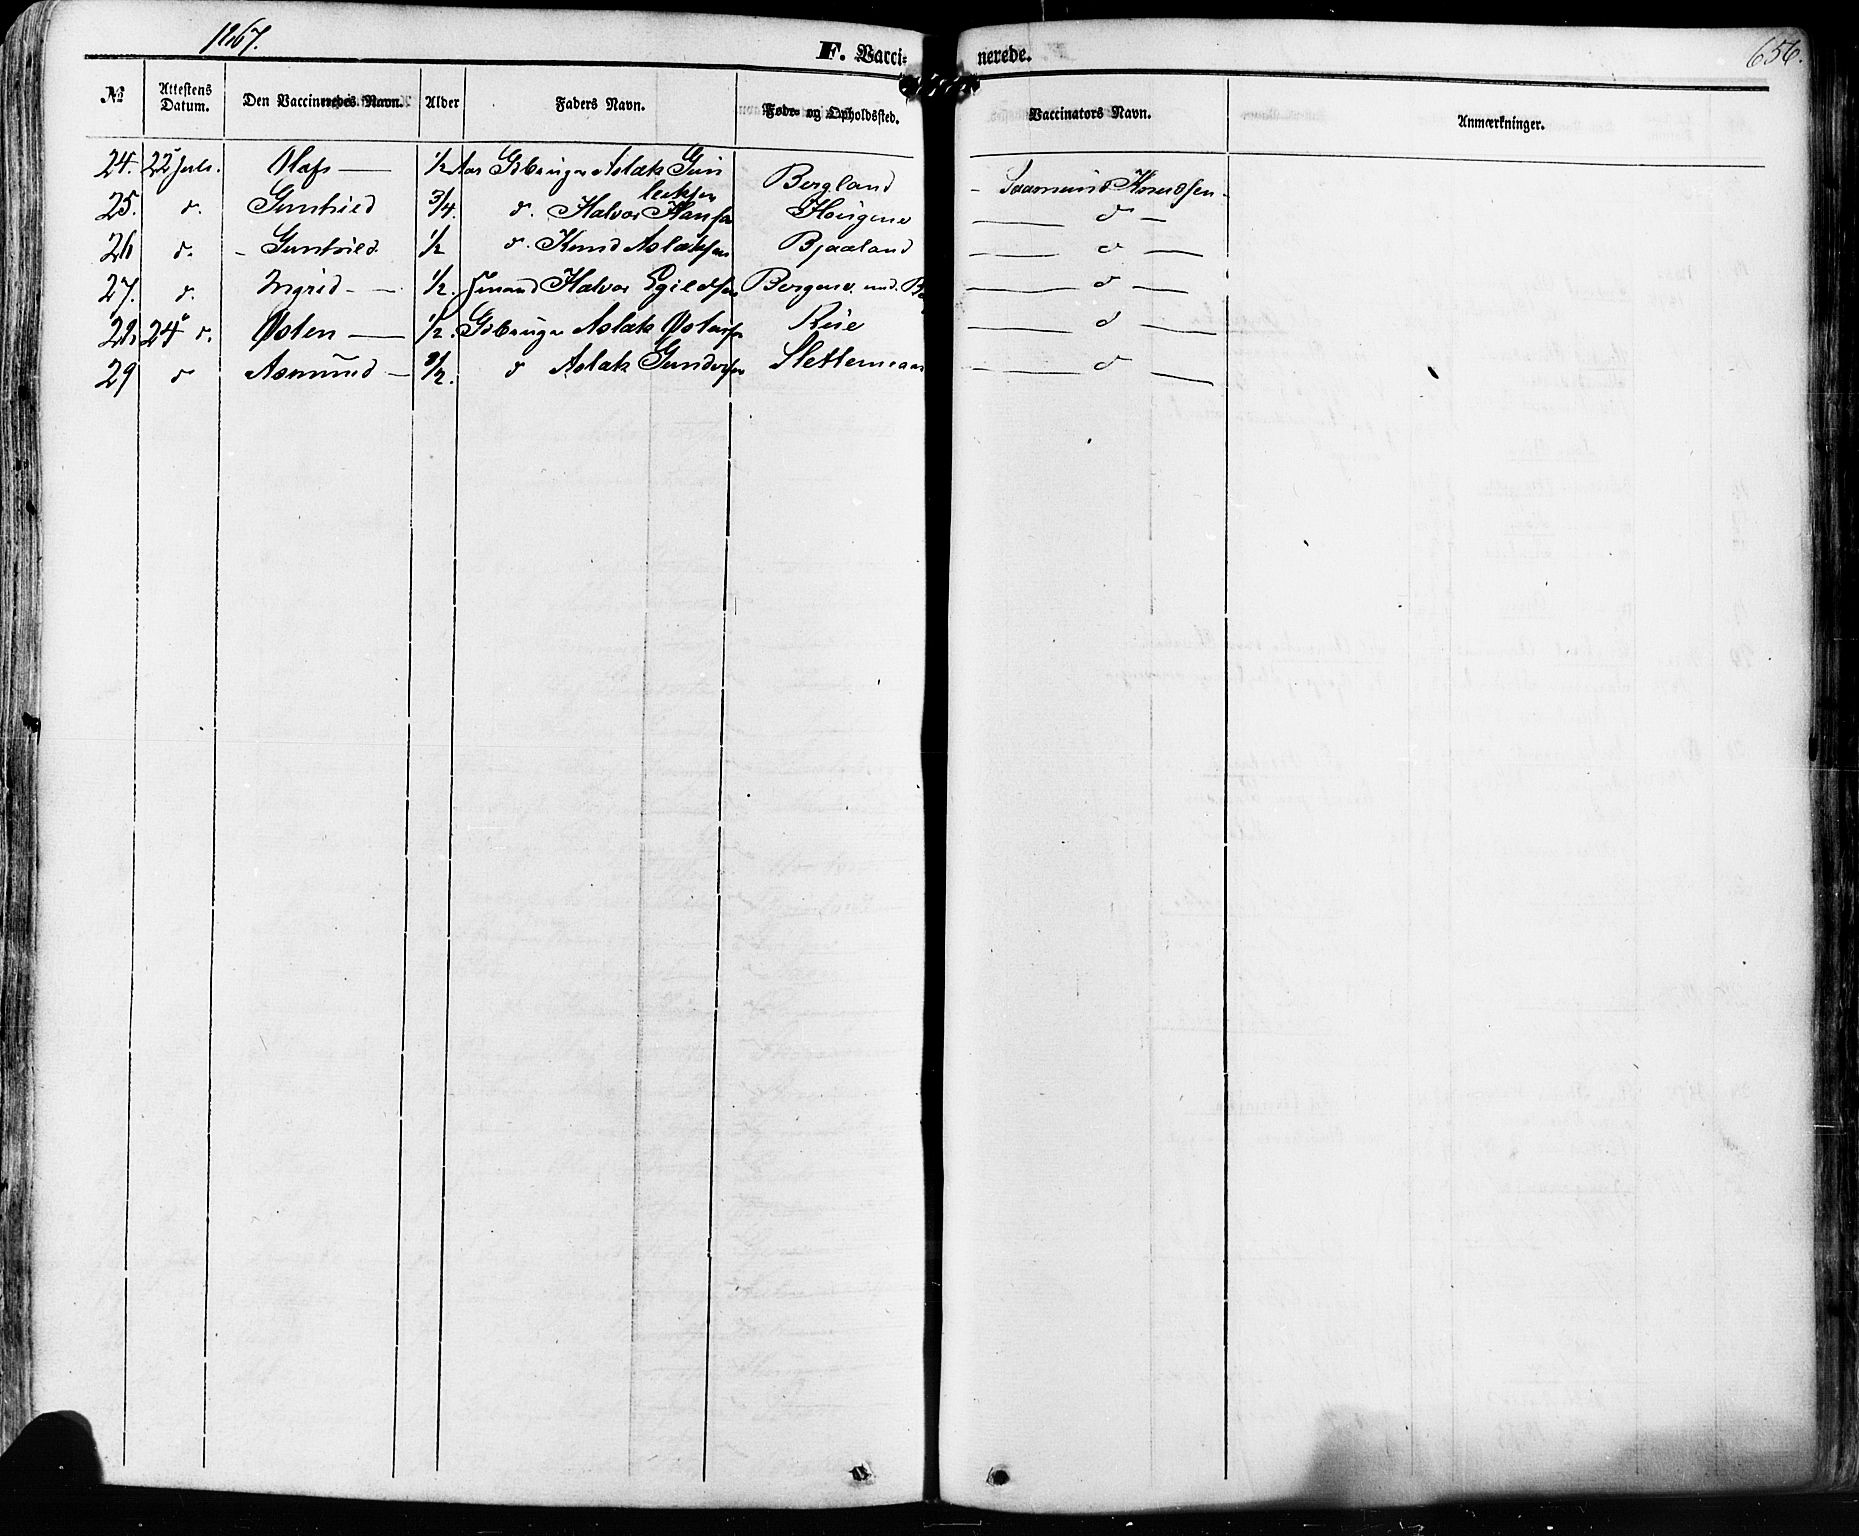 1867.
F. Vacci- nerede.
656.
№ Attestens Datum. Den Vaccineredes Navn. Alder Faders Navn. Føde- og Opholdssted. Vaccinators Navn. Anmærkninger.
24. 22 Juli. Olaf — 1/2 Aar Gdbruger Aslak Gun
leiksen Bergland - Saamund Knudsen.
25. d. Gunhild 3/4. d. Halvor Hansen Haugene — d —
26 d. - Gunhild 1/2 d. Knud Aslaksen Bjaaland — d —
27. d. Ingrid - — 1/2. Huusmand Halvor Egildsen Bergene. und. — d —
28 24 d. Østen — 1/2. Gdbruger Aslak Østensen Rue — d —
29 d Asmund — 1/2. d Aslak Gundersen Slettemeaas — d —